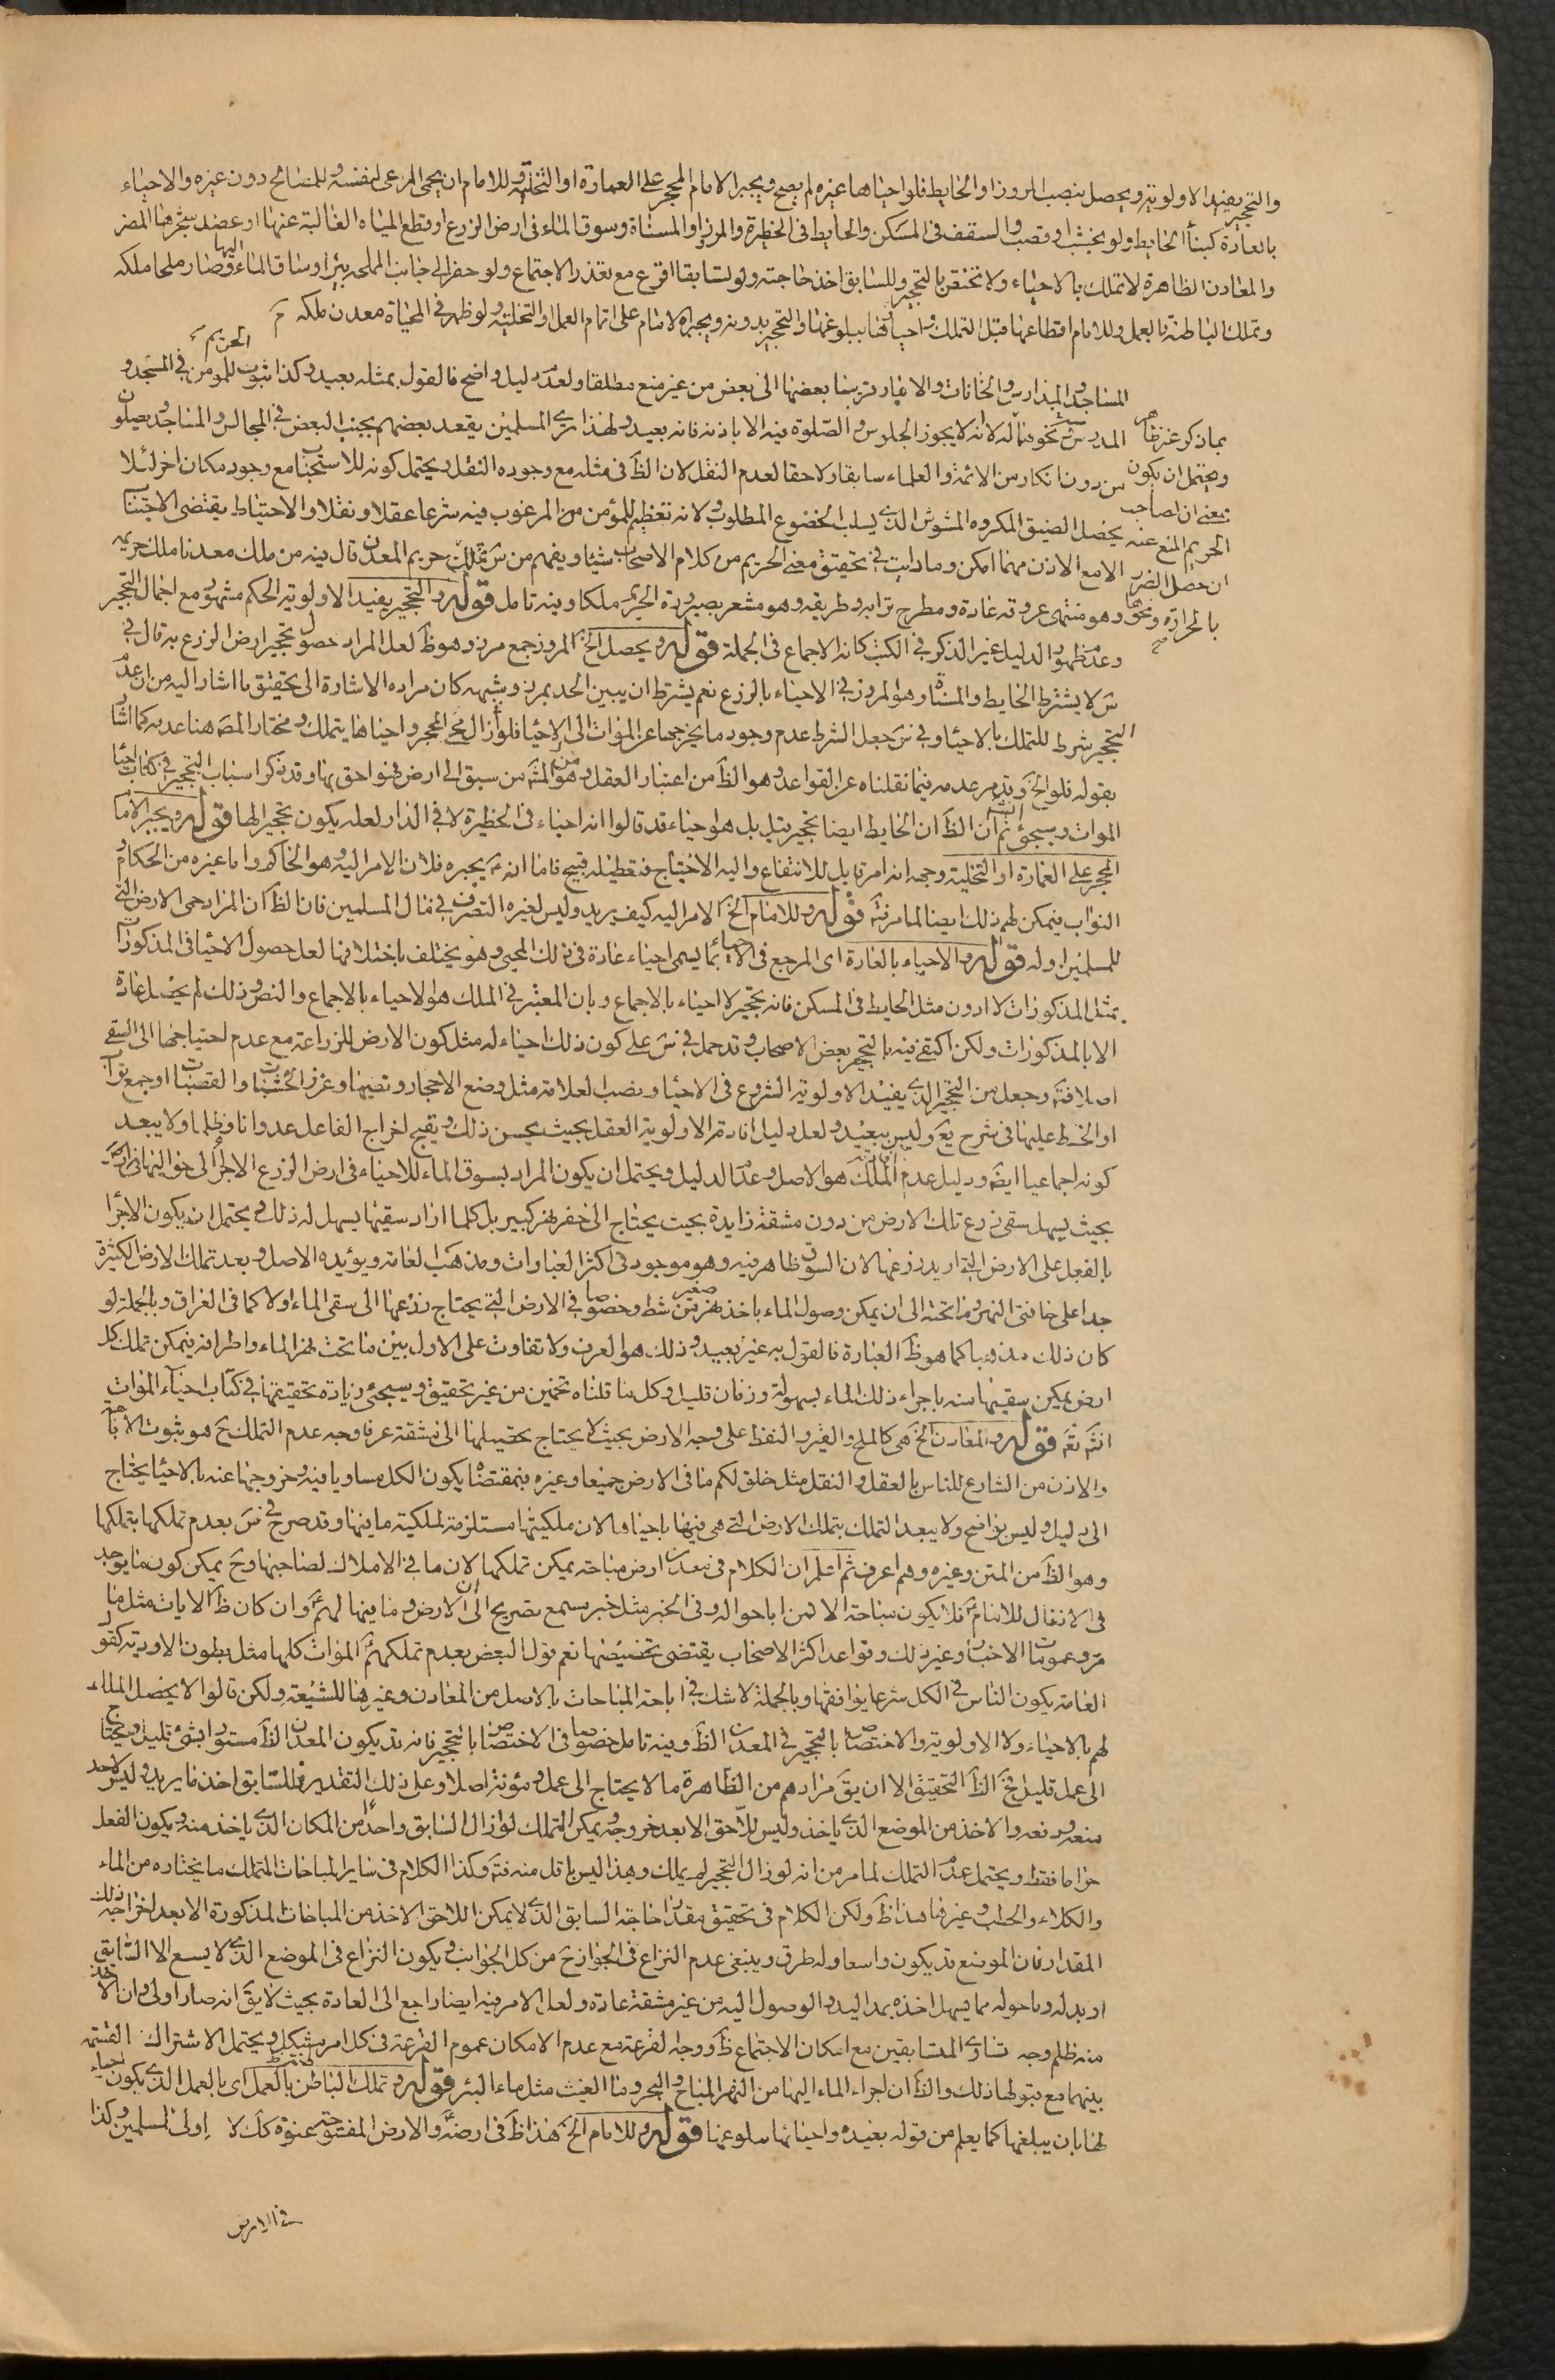 والتحجير يفيد الاولوية ويحصل بنصب المروز او الحايط فلو احياها غيره لم يصح ويجبر الامام المحجر على العمارة او التخلية وللامام ان يحمى المرعى لنفسه وللمصالح دون غيره والاحياء
بالعادة كبناء الحايط ولو بخشب او قصب والسقف فى المسكن والحايط فى الحظيرة والمرز او المسناة وسوق الماء فى ارض الزرع او قطع المياه الغالبة عنها او عضد شجرها المضر
والمعادن الظاهرة لا تملك بالاحياء ولا تختص بالتحجير وللسابق اخذ حاجته ولو تسابقا اقرع مع تعذر الاجتماع ولو حفر الى جانب المملحة بئرا وساق الماء اليها فصار ملحا ملكه
وتملك الباطنة بالعمل وللامام اقطاعها قبل التملك واحياؤها ببلوغها والتحجير بدونه ويجبره الامام على اتمام العمل او التخلية ولو ظهر فى المحياة معدن ملكه
الحريم
المساجد والمدارس والخانات بعضها الى بعض من غير منع مطلقا ولعدم دليل واضح فالقول بمثله بعيد وكذا ثبوت للمؤمن فى المسجد و
بما ذكر غير ظاهر
المدرس نحوهما له لانه لا يجوز الجلوس والصلوة فيه الا باذنه فانه بعيد ولهذا يرى المسلمين يقعد بعضهم بجنب البعض فى المجالس والمساجد ويصلون
ويحتمل ان يكون
من دون انكار من الائمة والعلماء سابقا ولاحقا لعدم النقل لان الظ فى مثله مع وجوده النقل ويحتمل كونه للاستحباب مع وجود مكان اخر لئلا
بمعنى ان لصاحب
يحصل الضيق المكروه المشوش الذى يسلب الخضوع المطلوب ولانه تعظيم للمؤمن من المرغوب فيه شرعا عقلا ونقلا والاحتياط يقتضى الاجتناب
الحريم المنع عنه
الا مع الاذن مهما امكن وما رايت فى تحقيق معنى الحريم من كلام الاصحاب شيئا ويفهم من س تملك حريم المعدن قال فيه من ملك معدنا ملك حريمه
ان حصل الضرر
وهو منتهى عروقه عادة ومطرح ترابه وطريقه وهو مشعر بصيرورة الحريم ملكا وفيه تامل قوله والتحجير يفيد الاولوية الحكم مشهور مع اجمال التحجير
بالحرارة ونحوها
وعدم ظهور الدليل غير الذكر فى الكتب كانه الاجماع فى الجملة قوله ويحصل الخ المروز جمع مرز وهو ظ لعل المراد حصول تحجير ارض الزرع به قال فى
س لا يشترط الحايط والمسناة وهو المروز فى الاحياء بالزرع نعم يشترط ان يبين الحد بمرز وشبهه كان مراده الاشارة الى تحقيق ما اشار اليه من ان عدم
التحجير شرط للتملك بالاحياء وفى س جعل الشرط عدم وجود ما يخرجها عن الموات الى الاحياء فلو زال المحجر واحياها يتملك ومختار المص هنا عدمه كما اشار
بقوله فلو الخ ويقدم عدمه فيما نقلناه عن القواعد وهو الظ من اعتبار العقل وهو المشه من سبق الى ارض فهو احق بها وقد ذكر اسباب التحجير فى كتاب احياء
الموات وسيجئ ثم ان الظ ان الحايط ايضا تحجير بتل بل هو احياء قد قالوا انه احياء فى الحظيرة لا فى الدار لعله يكون تحجيرا لها قوله ويجبر الامام
المحجر على العمارة او التخلية وجهه انه امر قابل للانتفاع واليه الاحتياج فتعطيله قبيح فاما انه يجبره فلان الامر اليه وهو الحاكم واما غيره من الحكام و
النواب فيمكن لهم ذلك ايضا لما مر فته قوله وللامام الخ الامر اليه كيف يريد وليس لغيره التصرف فى مال المسلمين فان الظ ان المراد حمى الارض التى
للمسلمين اوله قوله والاحياء بالعادة اى المرجع فى الاحياء بما يسمى احياء عادة فى ذلك المحيى وهو يختلف باختلافها لعل حصول الاحياء فى المذكورات
بمثل المذكورات لا ادون مثل الحايط فى المسكن فانه تحجير لا احياء بالاجماع وبان المعتبر فى الملك هو الاحياء بالاجماع والنص وذلك لم يحصل عادة
الا بالمذكورات ولكن اكتفى فيه بالتحجير بعض الاصحاب وقد حمل فى س على كون ذلك احياء له مثل كون الارض للزراعة مع عدم احتياجها الى السقى
اصلا فته وجعل من التحجير الذى يفيد الاولوية الشروع فى الاحياء ونصب العلامة مثل وضع الاحجار ونصبها وغرز الخشبات والقصبات او جمع تراب
او الخط عليها فى شرح يع وليس ببعيد ولعل دليل افادته الاولوية العقل بحيث يحسن ذلك ويقبح اخراج الفاعل عدوانا وظلما ولا يبعد
كونه اجماعيا ايض ودليل عدم الملك هو الاصل وعدم الدليل ويحتمل ان يكون المراد بسوق الماء للاحياء فى ارض الزرع الاجراء الى حواليها فى الارض
بحيث يسهل سقى زرع تلك الارض من دون مشقة زايدة بحيث يحتاج الى حفر نهر كبير بل كلما اراد سقيها يسهل له ذلك ويحتمل ان يكون الاجراء
بالفعل على الارض التى اريد زرعها لان السوق ظاهر فيه وهو موجود فى اكثر العبارات ومذهب العامة ويؤيده الاصل وبعد تملك الارض الكثيرة
جدا على حافتى النهر وما تحته الى ان يمكن وصول الماء باخذ نهر صغير من شط وخصوصا فى الارض التى يحتاج زرعها الى سقى الماء اولا كما فى العراق وبالجملة لو
كان ذلك مذهبا كما هو ظ العبارة فالقول به غير بعيد وذلك هو العرف ولا تفاوت على الاول بين ما تحت نهر الماء واطرافه فيمكن تملك كل
ارض يمكن سقيها منه باجراء ذلك الماء بسهولة وزمان قليل وكل ما قلناه تخمين من غير تحقيق وسيجئ زيادة تحقيقها فى كتاب احياء الموات
انش تع قوله والمعادن الخ هى كالملح والقير والنفط على وجه الارض بحيث لا يحتاج تحصيلها الى مشقة عرفا وجه عدم التملك ح هو ثبوت الاباحة
والاذن من الشارع للناس بالعقل والنقل مثل خلق لكم ما فى الارض جميعا وغيره فبمقتضاه يكون الكل مساويا فيه وخروجها عنه بالاحياء يحتاج
الى دليل وليس بواضح ولا يبعد التملك بتملك الارض التى هى فيها باحياء ما لان ملكيتها مستلزمة لملكية ما فيها وقد صرح فى س بعدم تملكها بتملكها
وهو الظ من المتن وغيره وهم اعرف ثم اعلم ان الكلام فى معدن ارض مباحة يمكن تملكها لان ما فى الاملاك لصاحبها وح يمكن كون ما يوجد
فى الانفال للامام فلا يكون مباحة الا لمن اباحوا له وفى الخبر مثل خبر مسمع تصريح الى ان الارض وما فيها لهم وان كان ظ الايات مثل ما
مر وعمومات الاخبار وغير ذلك وقواعد اكثر الاصحاب يقتضى تخصيصها نعم قول البعض بعدم تملكهم الموات كلها مثل بطون الاودية كقول
العامة يكون الناس فى الكل شرعا يوافقها وبالجملة لا شك فى اباحة المباحات بالاصل من المعادن وغيرها للشيعة ولكن قالوا لا يحصل الملك
لهم بالاحياء ولا الاولوية والاختصاص بالتحجير فى المعدن الظ وفيه تامل خصوصا فى الاختصاص بالتحجير فانه قد يكون المعدن الظ مستورا بشئ قليل ويحتاج
الى عمل قليل فح الظ التحقيق الا ان يق مرادهم من الظاهرة ما لا يحتاج الى عمل ومؤنة اصلا وعلى ذلك التقدير فللسابق اخذ ما يريد وليس لاحد
منعه ودفعه والاخذ من الموضع الذى ياخذ وليس للاحق الا بعد خروجه ويمكن التملك لو زال السابق واحدا من المكان الذى ياخذ منه ويكون الفعل
حراما فقط ويحتمل عدم التملك لما مر من انه لو زال التحجير لم يملك وهذا ليس باقل منه فته وكذا الكلام فى ساير المباحات التملك ما يختاره من الماء
والكلاء والحطب وغيرها هذا ظ ولكن الكلام فى تحقيق مقدار حاجة السابق الذى لا يمكن اللاحق الاخذ من المباحات المذكورة الا بعد اخراجه ذلك
المقدار فان الموضع قد يكون واسعا وله طرق وينبغى عدم النزاع فى الجواز ح من كل الجوانب ويكون النزاع فى الموضع الذى لا يسع الا السابق
او بدله وما حوله مما يسهل اخذه بمد اليد والوصول اليه من غير مشقة عادة ولعل الامر فيه ايضا راجع الى العادة بحيث لا يق انه صار اولى وان الاخذ
منه ظلم وجه تساوى المتسابقين مع امكان الاجتماع ظ ووجه القرعة مع عدم الامكان عموم القرعة فى كل امر مشكل ويحتمل الاشتراك القسمة
بينهما مع قبولها ذلك والظ ان اجراء الماء اليها من النهر المباح والبحر وما الغيث مثل ماء البئر قوله وتملك الباطن بالعمل اى بالعمل الذى يكون احياء
لها بان يبلغها كما يعلم من قوله بعيده واحيائها ببلوغها قوله وللامام الخ هذا ظ فى ارضه والارض المفتوحة عنوة كك لا اولى المسلمين وكذا
فى الارض